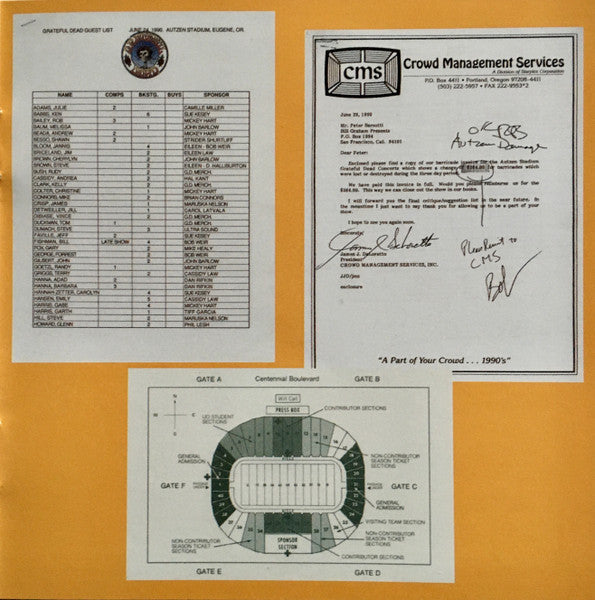 GRATEFUL DEAD GUEST LIST JUNE 24, 1990, AUTZEN STADIUM, EUGENE, OR.
NAME COMPS BKSTG. BUYS SPONSOR
ADAMS, JULIE 2 CAMILLE MILLER
BABBS, KEN 6 SUE KESEY
BAILEY, ROB 3 MICKEY HART
BAUM, MELISSA 1 JOHN BARLOW
BEADA, ANDREW 2 MICKEY HART
BESSO, SHAWN 2 STRIDER SHURTLIFF
BLOOM, JANNIS 4 EILEEN - BOB WEIR
BRICELAND, JIM 2 EILEEN LAW
BROWN, CHERRYLYN 2 JOHN BARLOW
BROWN, STEVE 2 EILEEN - D. HALLIBURTON
BUSH, RUDY 2 G.D. MERCH
CASSIDY, ANDREA 2 HAL KANT
CLARK, KELLY 2 G.D. MERCH
COLTER, CHRISTINE 2 MICKEY HART
CONNORS, MIKE 2 BRIAN CONNORS
CRISP, JAMES 2 MARUSKA NELSON
DETWEILLER, JILL 2 CAROL LATVALA
2 G.D. MERCH
DUCKMAN, TOM 1 G.D. MERCH
DUNACH, STEVE 3 ULTRA SOUND
FAVILLE, JEFF 2 SUE KESEY
FISHMAN, BILL LATE SHOW 4 BOB WEIR
FOX, GARY 2 MIKE HEALY
GEORGE, FORREST 2 BOB WEIR
GILBERT, JOHN 2 JOHN BARLOW
GOETZL, RANDY 1 MICKEY HART
GREGG, TERRY 2 CASSIDY LAW
HANNA, ADAD 2 DAN RIFKIN
HANNA, BARBARA 3 DAN RIFKIN
HANNAH-ZETTER, CAROLYN 4 SUE KESEY
HANSEN, EMILY 5 CASSIDY LAW
HARRIS, GABE 4 MICKEY HART
HARRIS, GARTH 1 TIFF GARCIA
HILL, STEVE 2 MARUSKA NELSON
HOWARD, GLENN 2 PHIL LESH
cms
Crowd Management Services
A Division of Starplex Corporation
P.O. Box 4411 • Portland, Oregon 97208-4411
(503) 222-5957 • FAX 222-9953*2
June 29, 1990
Mr. Peter Barsotti
Bill Graham Presents
P.O. Box 1994
San Francisco, Cal. 94101
OK
Autzen Damage
Dear Peter:
Enclosed please find a copy of our barricade invoice for the Autzen Stadium
Grateful Dead Concerts which shows a charge of $184.00 for barricades which
were lost or destroyed during the three day period.
We have paid this invoice in full. Would you please reimburse us for the
$184.00. This way we can close out the show in our books.
I will forward you the final critique/suggestion list in the near future. In
the meantime I just want to say thank you for allowing us to be a part of your
show.
I hope to see you again soon.
Sincerely,
President
CROWD MANAGEMENT SERVICES, INC.
enclosure
Please Remit to
CMS
"A Part of Your Crowd . . . 1990's"
GATE A Centennial Boulevard GATE B
Will Call
PRESS BOX
CONTRIBUTOR SECTIONS
UO STUDENT
SECTIONS
N
W E
S
GENERAL
ADMISSION
NON-CONTRIBUTOR
SEASON TICKET
SECTIONS
GATE F
GATE C
GENERAL
ADMISSION
VISITING TEAM SECTION
NON-CONTRIBUTOR
SEASON TICKET
SECTIONS
SPONSOR
SECTION
NON-CONTRIBUTOR
SEASON TICKET
SECTIONS
CONTRIBUTOR SECTIONS
GATE E
GATE D